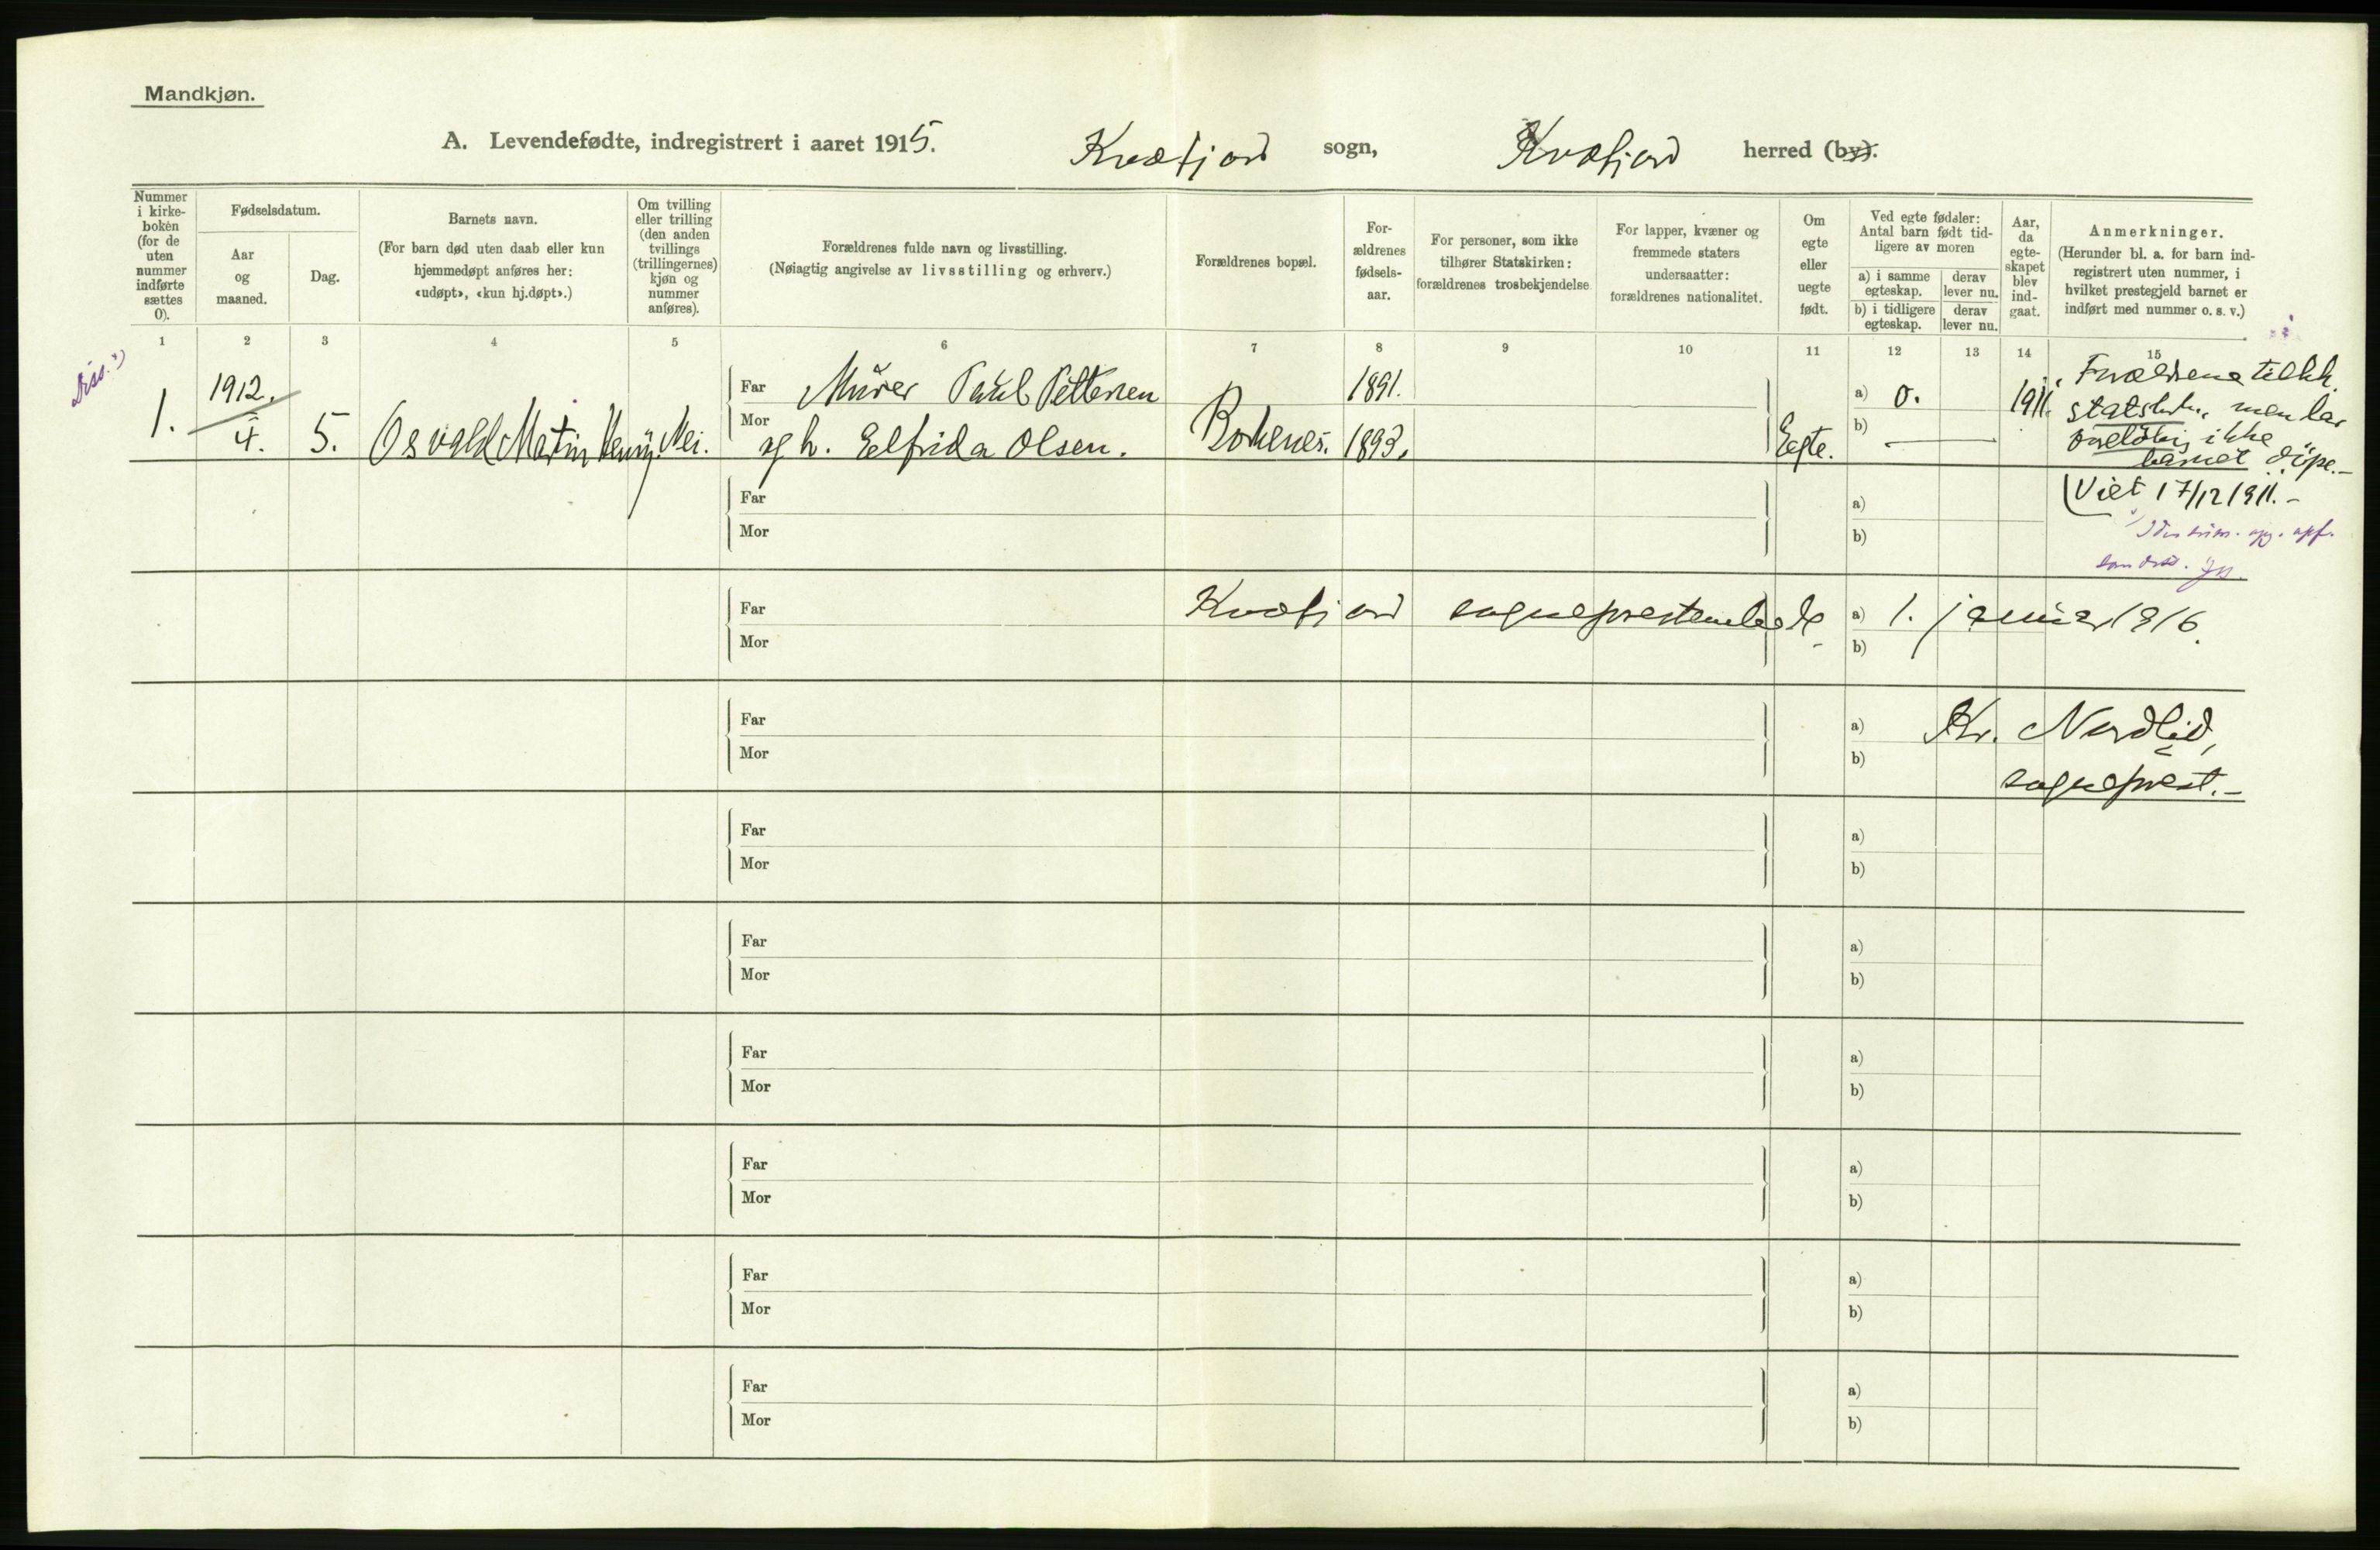 Mandkjøn.
A. Levendefødte, indregistrert i aaret 1915. Kvæfjord sogn, Kvæfjord herred (by).
Nummer i kirke-boken (for de uten nummer indførte sættes 0).
Fødselsdatum.
Aar og maaned.
Dag.
Barnets navn.
(For barn død uten daab eller kun hjemmedøpt anføres her: «udøpt», «kun hj.døpt».)
Om tvilling eller trilling (den anden tvillings (trillingernes) kjøn og nummer anføres).
Forældrenes fulde navn og livsstilling.
(Nøiagtig angivelse av livsstilling og erhverv.)
Forældrenes bopæl.
For-ældrenes fødsels-aar.
For personer, som ikke tilhører Statskirken: forældrenes trosbekjendelse
For lapper, kvæner og fremmede staters undersaatter: forældrenes nationalitet.
Om egte eller uegte født.
Ved egte fødsler: Antal barn født tid-ligere av moren
a) i samme egteskap. derav lever nu.
b) i tidligere egteskap. derav lever nu.
Aar, da egte-skapet blev ind-gaat.
Anmerkninger.
(Herunder bl. a. for barn ind-registrert uten nummer, i hvilket prestegjeld barnet er indført med nummer o. s. v.)
1 2 3 4 5 6 7 8 9 10 11 12 13 14 15
Diss.
1912. Far Murer Paul Pettersen 1891. a) 0. 1911. Forældrene tilhh.
1. 4. 5. Osvald Martin Henry. Nei. Mor og h. Elfrida Olsen. Borkenes. 1893. Egte. b) — statsk. men lar
foreløbig ikke
barnet døpe.—
Far a) Viet 17/12 1911.—
Mor b)
som diss.
Far Kvæfjord sogneprestembede a) 1. januar 1916.
Mor b)
Far a) Kr. Nordlid,
Mor b) sogneprest.—
Far a)
Mor b)
Far a)
Mor b)
Far a)
Mor b)
Far a)
Mor b)
Far a)
Mor b)
Far a)
Mor b)